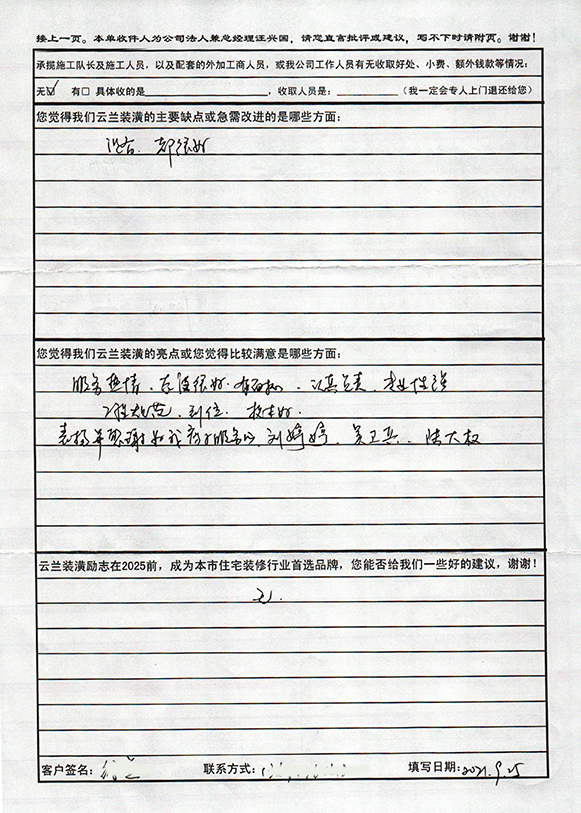 接上一页。本单收件人为公司法人兼总经理汪兴国，请您直言批评或建议，写不下时请附页。谢谢！
承揽施工队长及施工人员，以及配套的外加工商人员，或我公司工作人员有无收取好处、小费、额外钱款等情况：
无☑ 有□ 具体收的是____，收取人员是：____（我一定会专人上门退还给您）
您觉得我们云兰装潢的主要缺点或急需改进的是哪些方面：
没有、都很好
您觉得我们云兰装潢的亮点或您觉得比较满意是哪些方面：
服务热情、态度很好、认真负责、专业性强
工程规范、到位、
表扬并感谢 服务的 刘婷婷、吴卫兵、陆大权
云兰装潢励志在2025前，成为本市住宅装修行业首选品牌，您能否给我们一些好的建议，谢谢！
无.
客户签名： 联系方式： 填写日期：2021.9.25